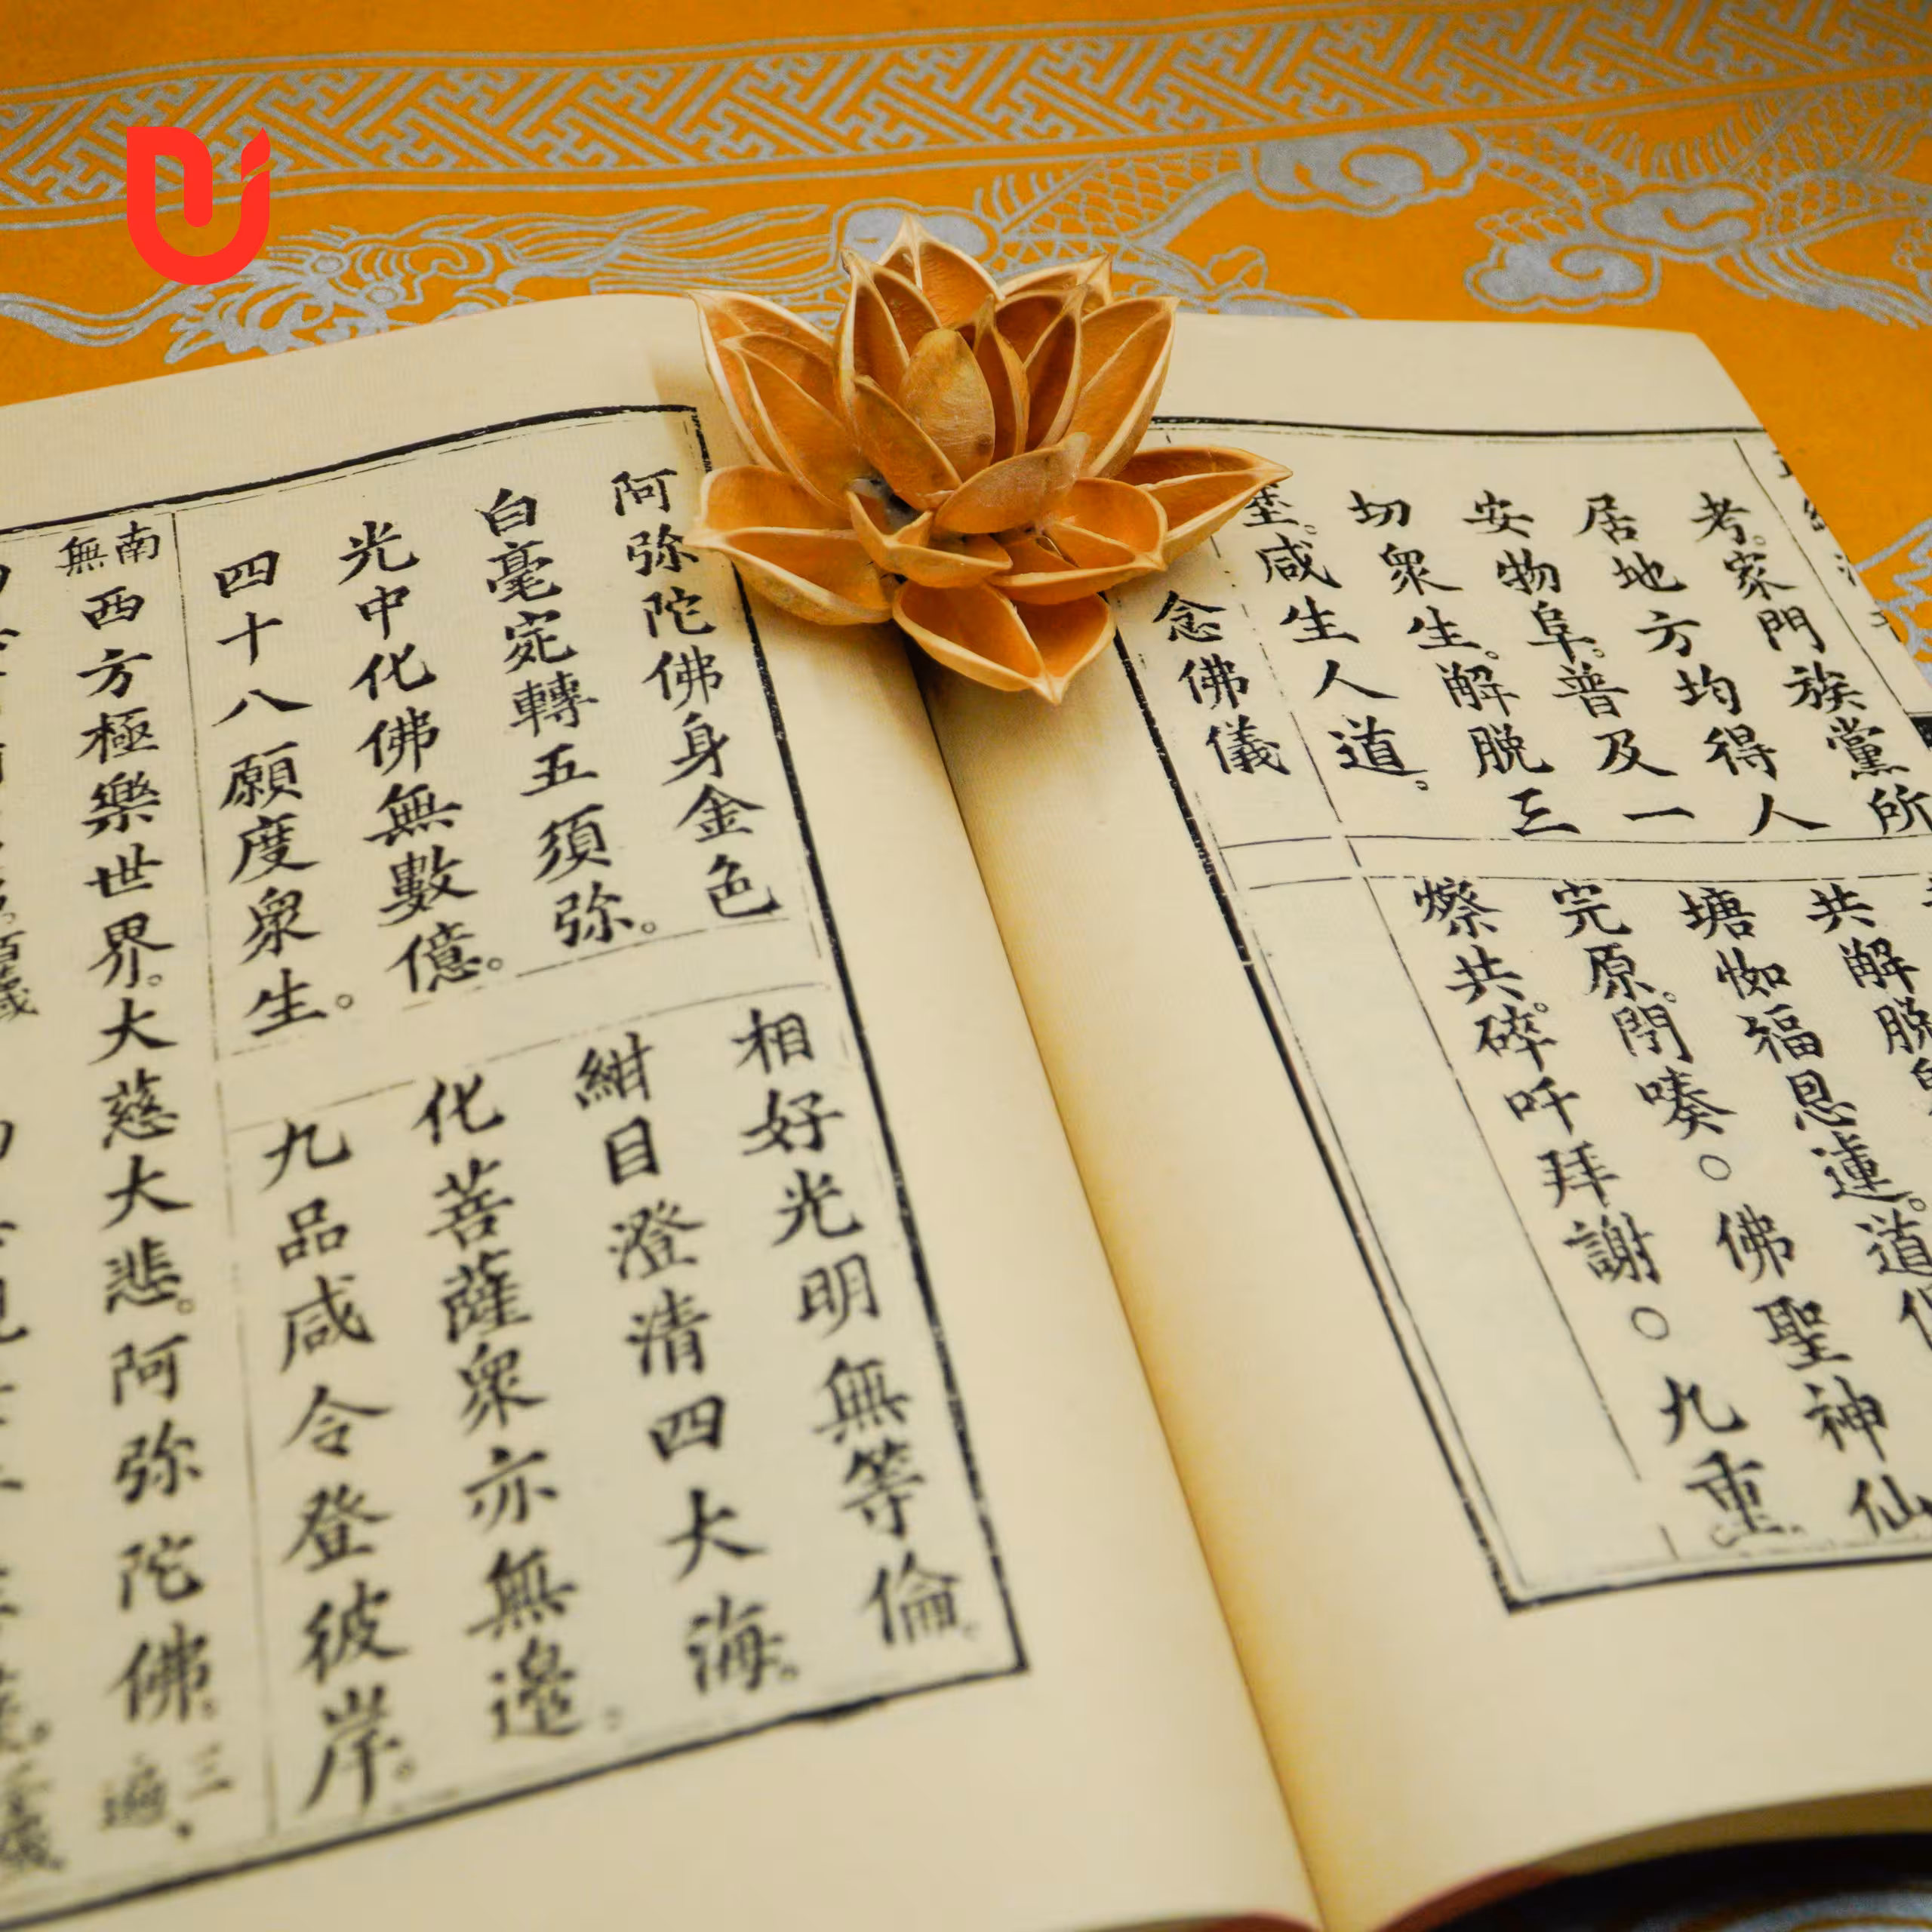 考。家門族黨所
居地方均得人
安物阜。普及一
切衆生。解脱三
塗。咸生人道。
念佛儀
共解脱
福恩
完原。○佛聖神仙
共。碎吀拜謝○九重
阿弥陀佛身金色
相好光明無等倫。
白毫宛轉五須弥。
紺目澄清四大海。
光中化佛無數億。
化菩薩衆亦無邊。
四十八願度衆生。
九品咸令登彼岸。
南無西方極樂世界。大慈大悲。阿弥陀佛。三遍